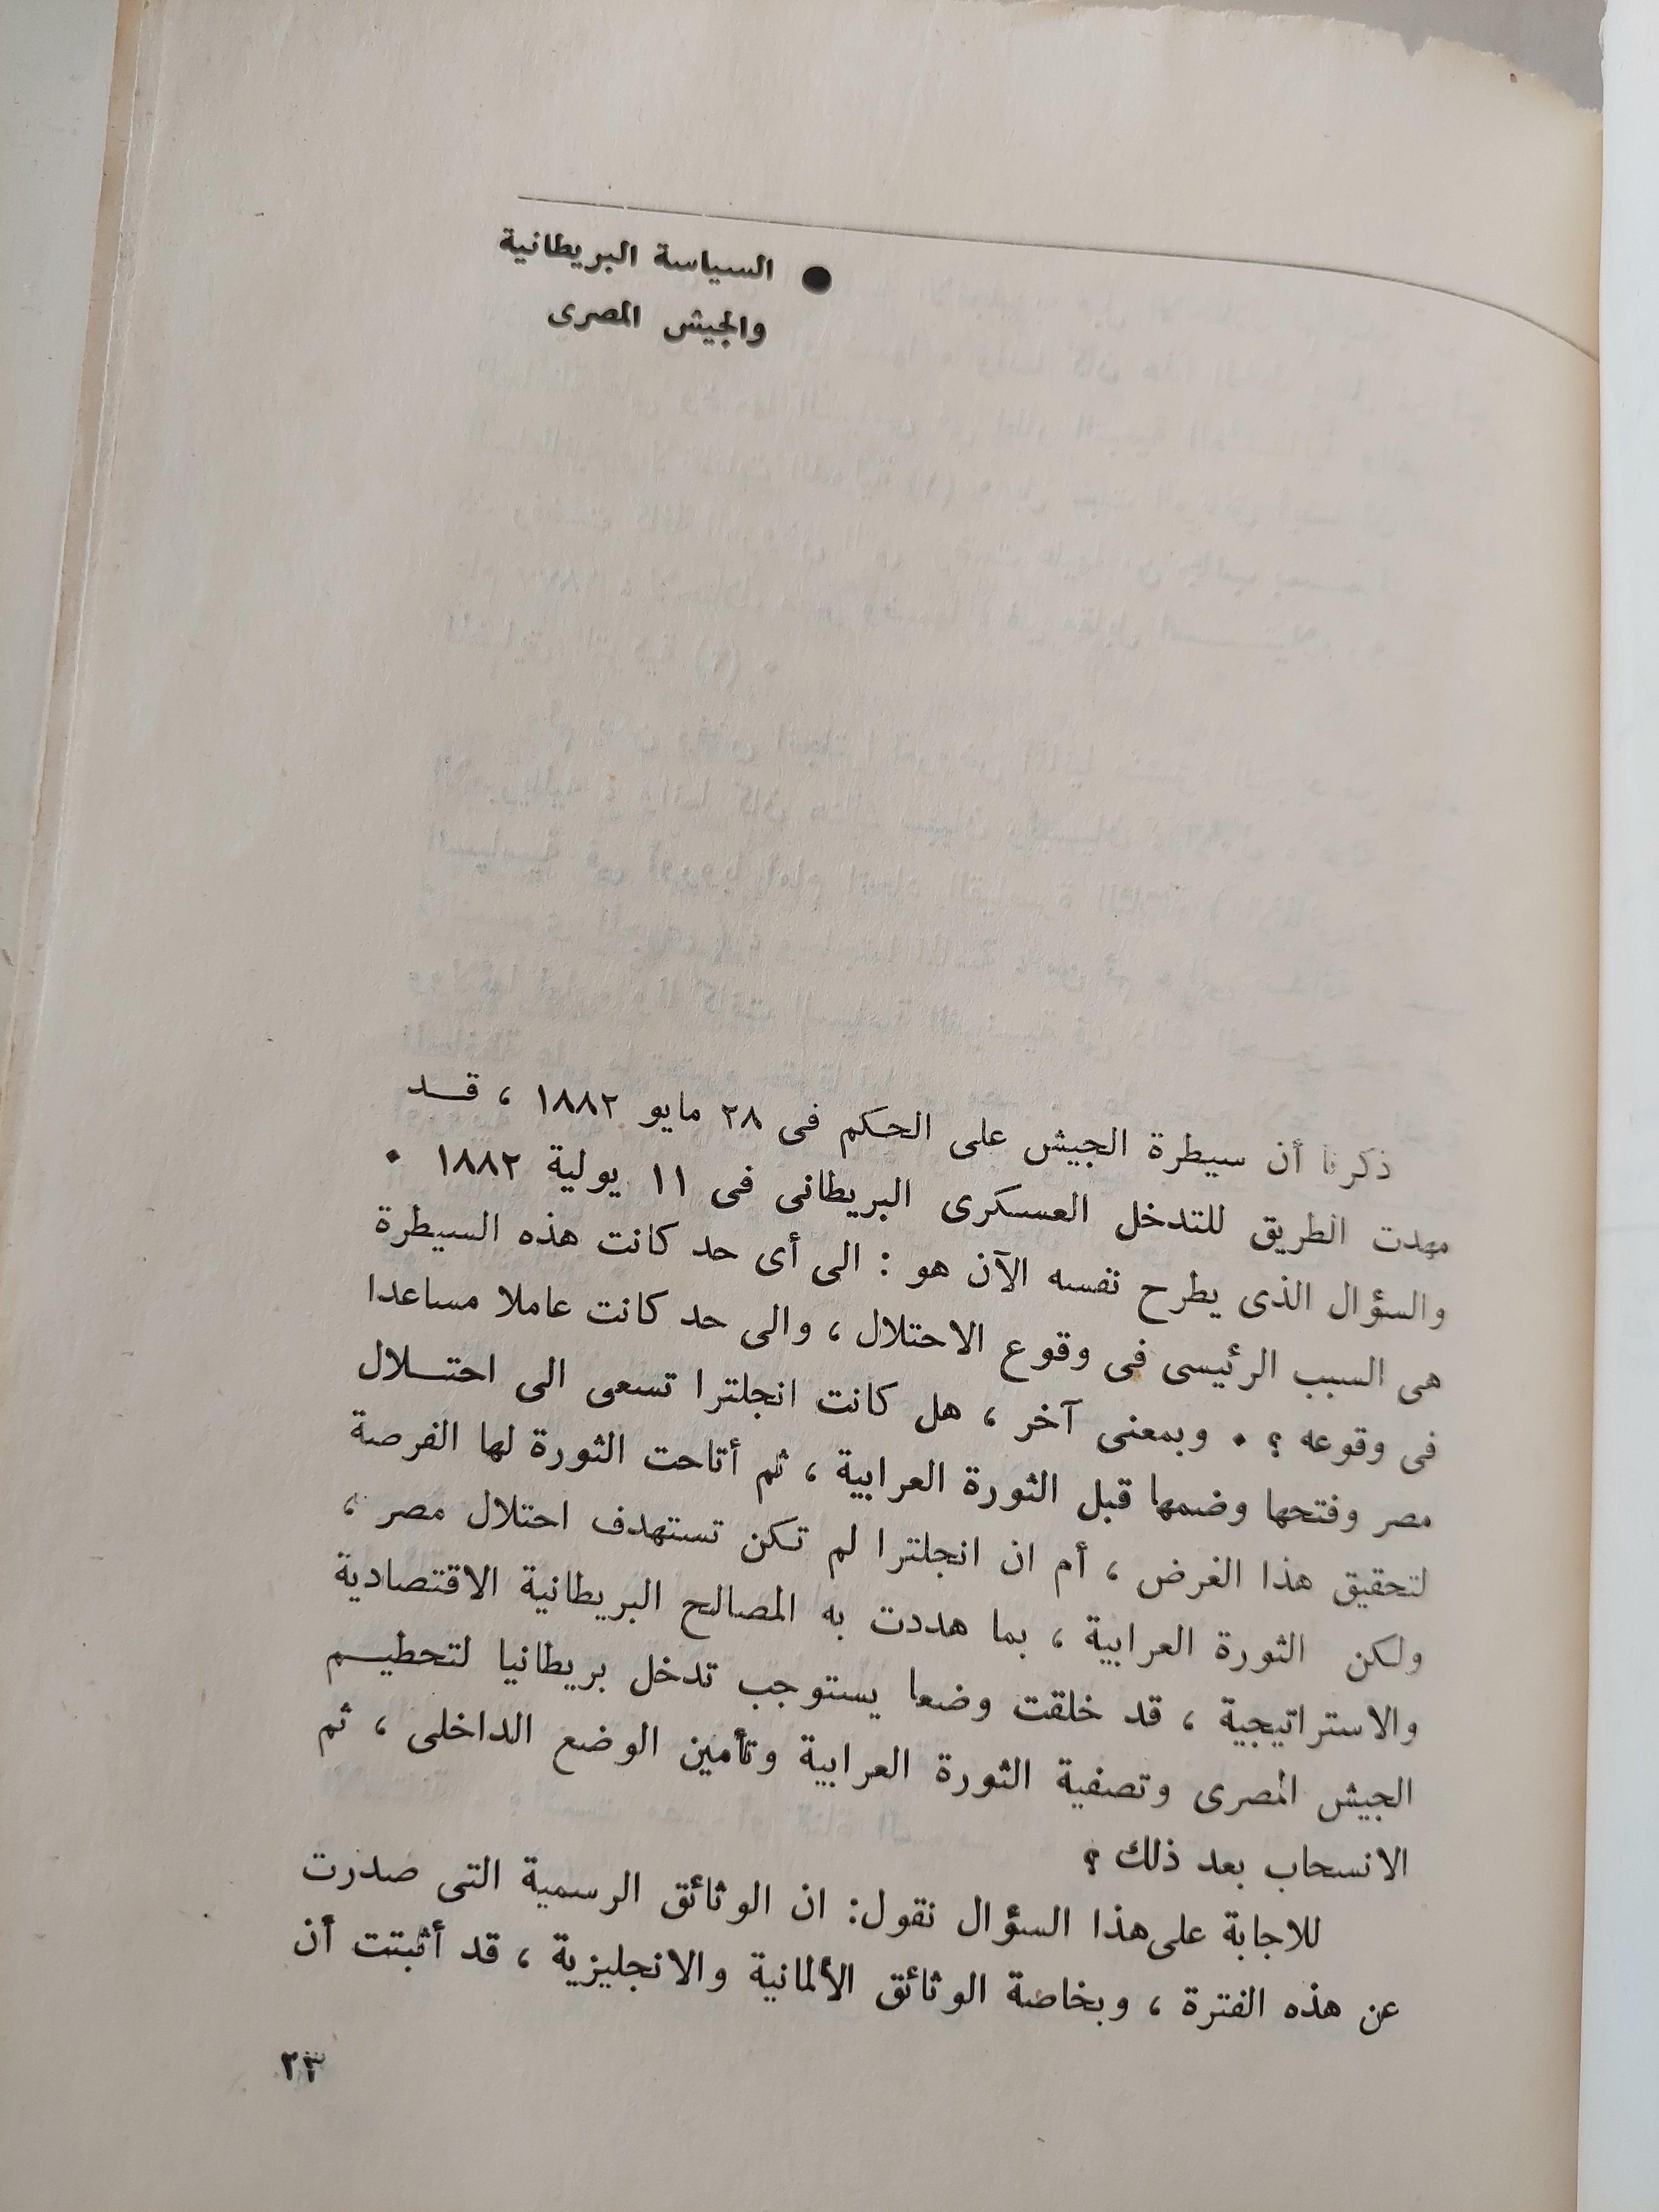 ● السياسة البريطانية
والجيش المصرى
ذكرنا أن سيطرة الجيش على الحكم فى ٢٨ مايو ١٨٨٢ ، قـد
مهدت الطريق للتدخل العسكرى البريطانى فى ١١ يولية ١٨٨٢ ٠
والسؤال الذى يطرح نفسه الآن هو : الى أى حد كانت هذه السيطرة
هى السبب الرئيسى فى وقوع الاحتلال ، والى حد كانت عاملا مساعدا
فى وقوعه ؟ ٠ وبمعنى آخر ، هل كانت انجلترا تسعى الى احتـلال
مصر وفتحها وضمها قبل الثورة العرابية ، ثم أتاحت الثورة لها الفرصة
لتحقيق هذا الغرض ، أم ان انجلترا لم تكن تستهدف احتلال مصر ،
ولكن الثورة العرابية ، بما هددت به المصالح البريطانية الاقتصادية
والاستراتيجية ، قد خلقت وضعا يستوجب تدخل بريطانيا لتحطيـم
الجيش المصرى وتصفية الثورة العرابية وتأمين الوضع الداخلى ، ثم
الانسحاب بعد ذلك ؟
للاجابة على هذا السؤال نقول: ان الوثائق الرسمية التى صدرت
عن هذه الفترة ، وبخاصة الوثائق الألمانية والانجليزية ، قد أثبتت أن
٢٣